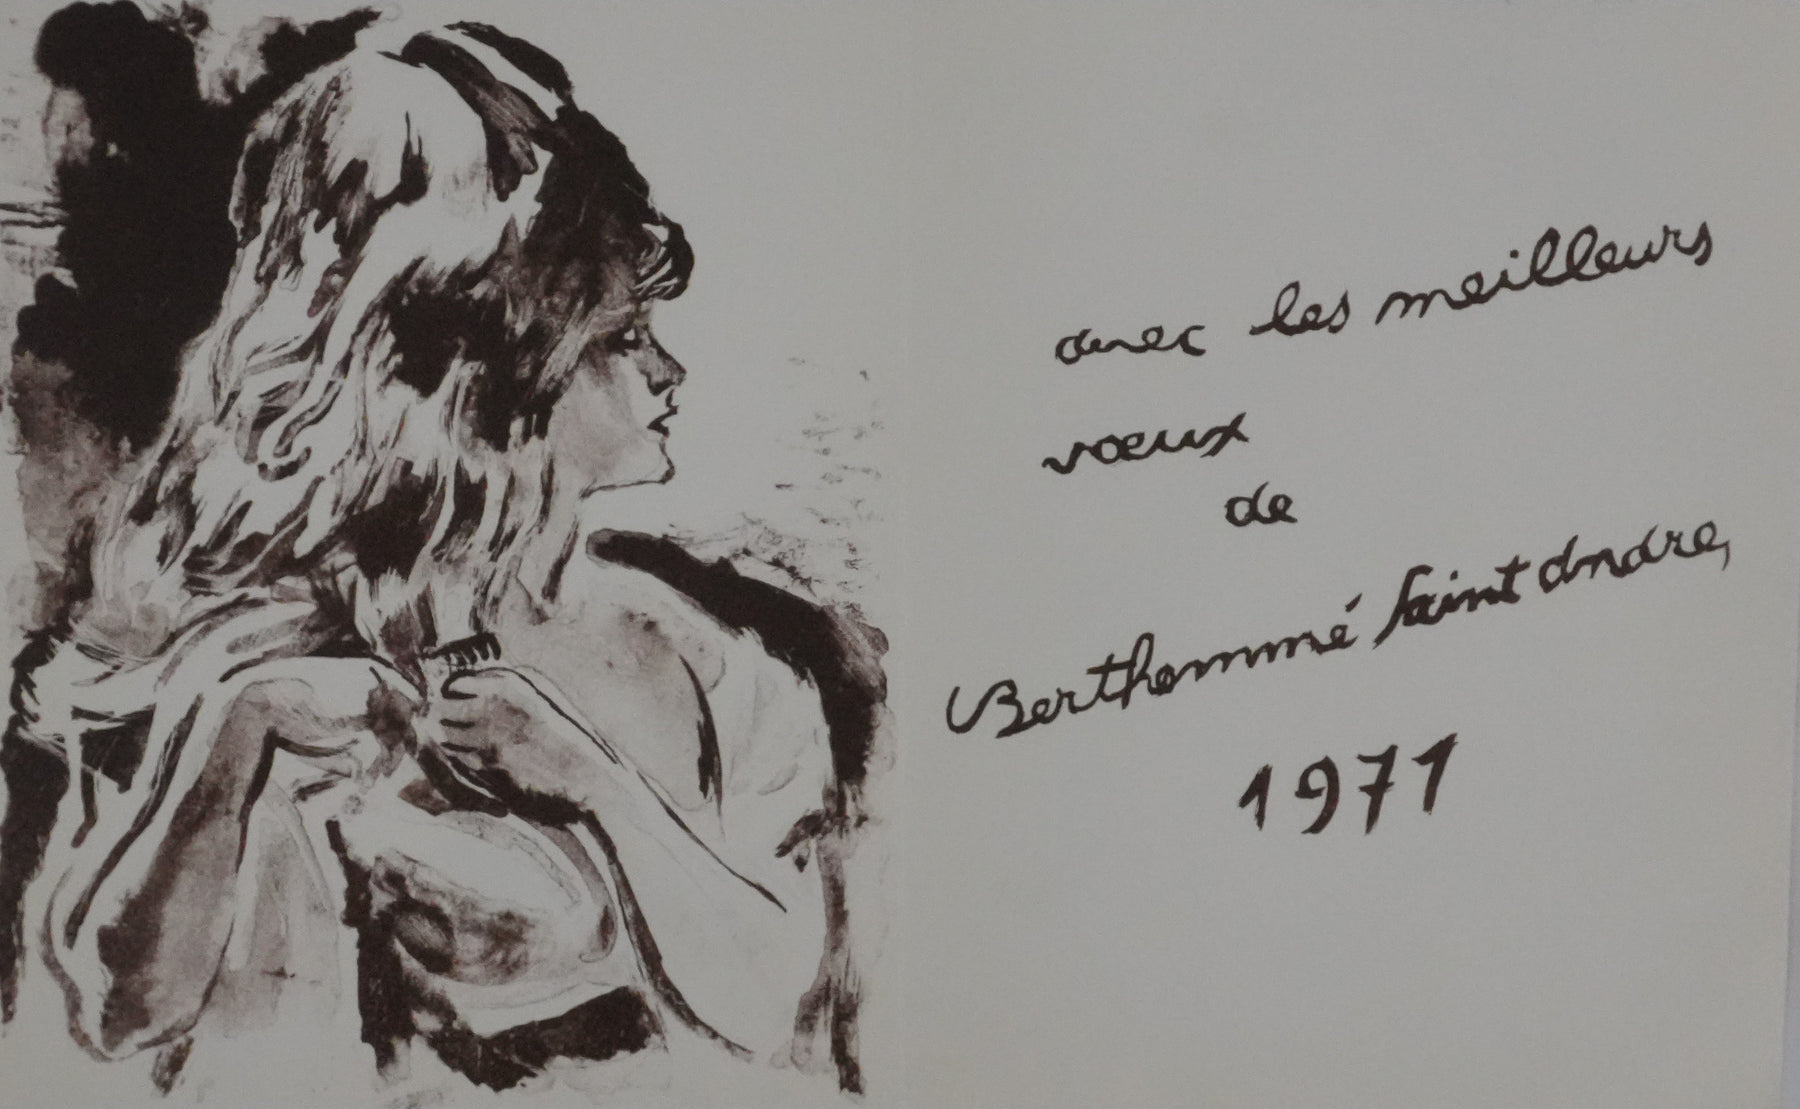 avec les meilleurs
vœux
de
Berthommé Saint André,
1971